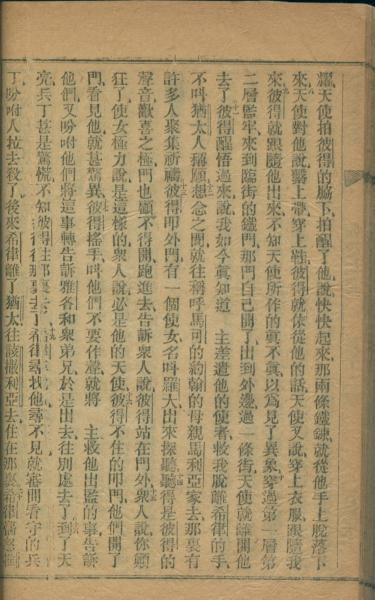 耀天使拍彼得的脇下拍醒了他說快快起來那兩條鐵鍊就從他手上脫落下
來天使對他說繫上帶穿上鞋彼得就依從他的話天使又說穿上衣服跟隨我
來彼得就跟隨他出來不知天使所作的眞不眞以為見了異象穿過第一層第
二層監牢來到臨街的鐵門那門自己開了出到外邊過一條街天使就離開他
去了彼得醒悟過來說我如今眞知道　主差遣他的使者救我脫離希律的手
不叫猶太人稱願想念之間就往稱呼馬可的約翰的母親馬利亞家去那裏有
許多人聚集祈禱彼得叩外門有一個使女名叫羅大出來探聽聽得是彼得的
聲音歡喜之極門也顧不得開跑進去告訴衆人說彼得站在門外衆人說你顚
狂了使女極力說是這樣的衆人說必是他的天使彼得不住的叩門他們開了
門看見他就甚驚異彼得搖手叫他們不要作聲就將　主救他出監的事告訴
他們又吩咐他們將這事轉告訴雅各和衆弟兄於是出去往別處去了到了天
亮兵丁甚是驚慌不知彼得往那裏去了希律尋找他尋不見就審問看守的兵
丁吩咐人拉去殺了後來希律離了猶太往該撒利亞去住在那裏希律惱怒